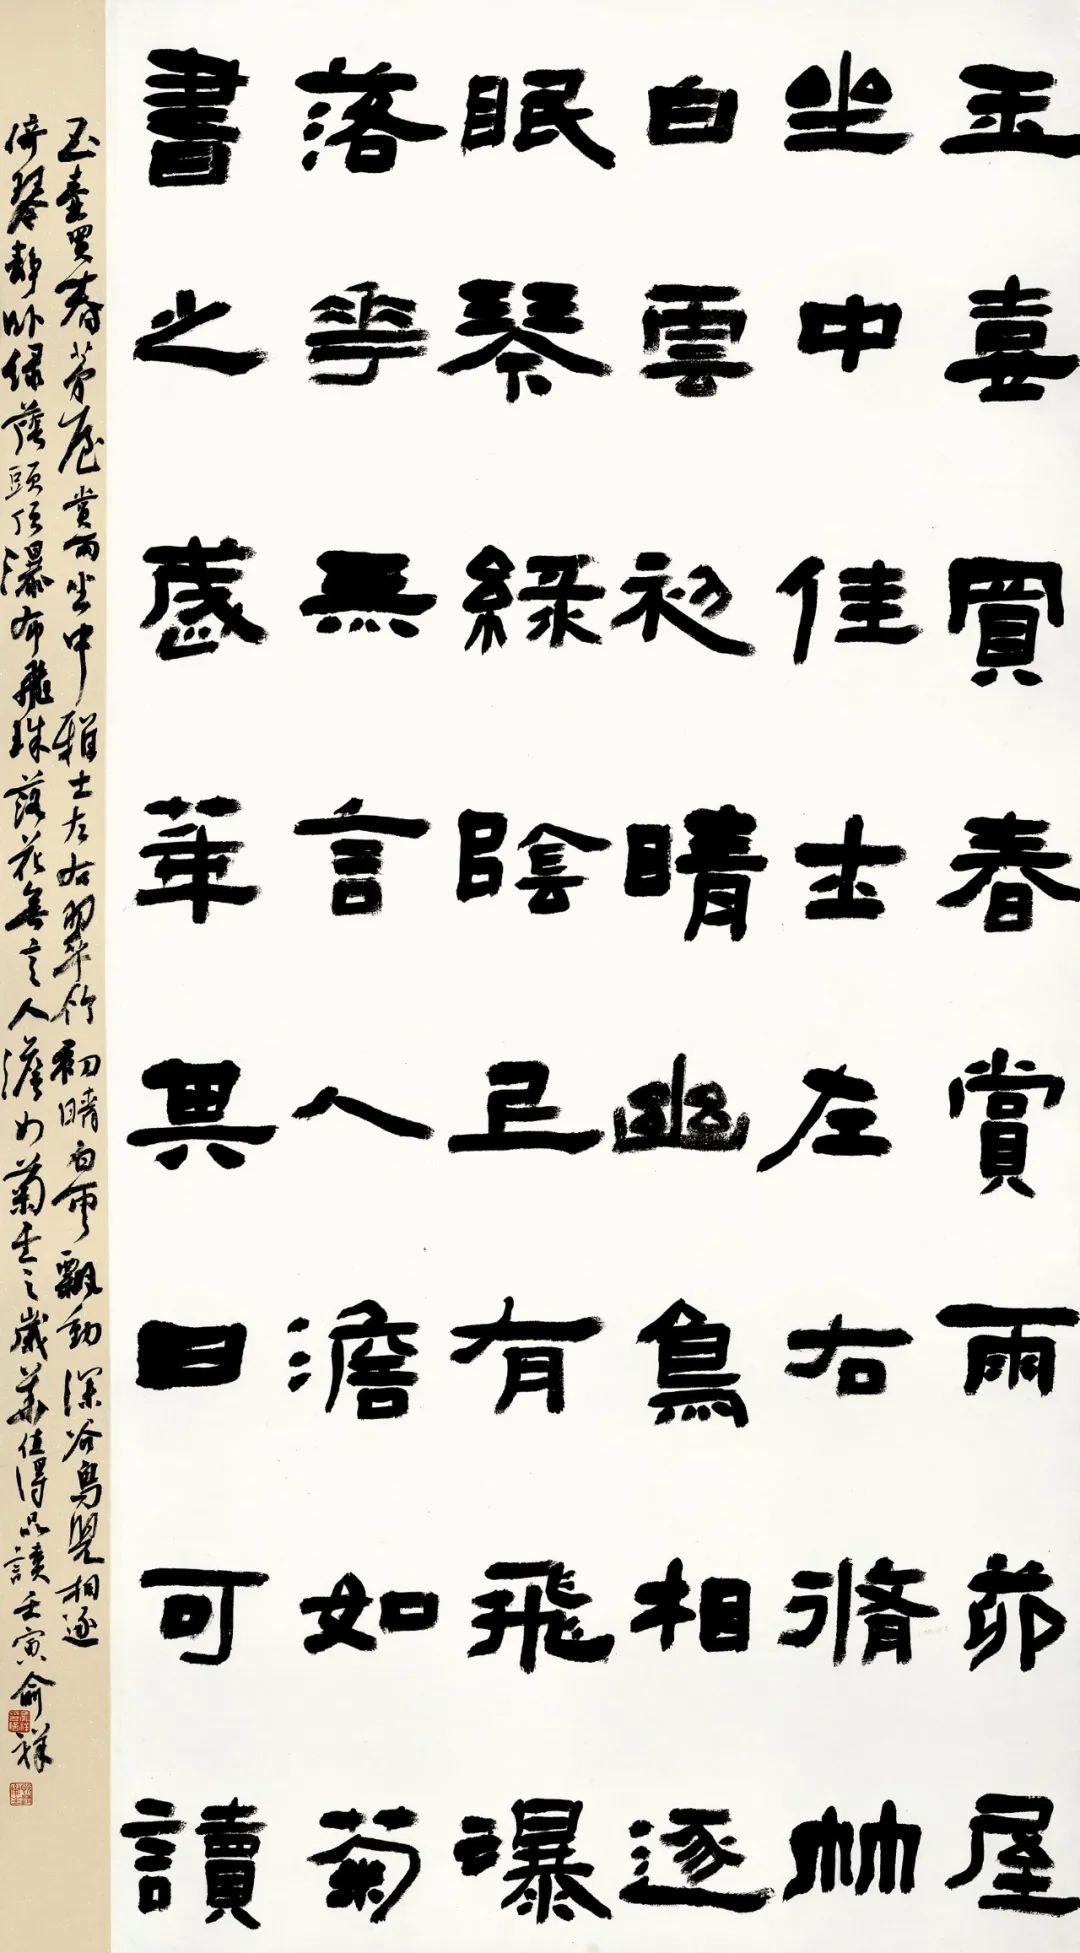 玉壺買春賞雨茆屋
坐中佳士左右脩竹
白雲初晴幽鳥相逐
眠琴綠陰上有飛瀑
落華無言人澹如菊
書之歲華其曰可讀
玉壺買春茅屋賞雨坐中雅士左右翠竹初晴白雲飄動深谷鳥兒相逐
倚琴靜卧綠蔭頭頂瀑布飛珠落花無言人澹如菊書之歲華值得品讀壬寅俞祥